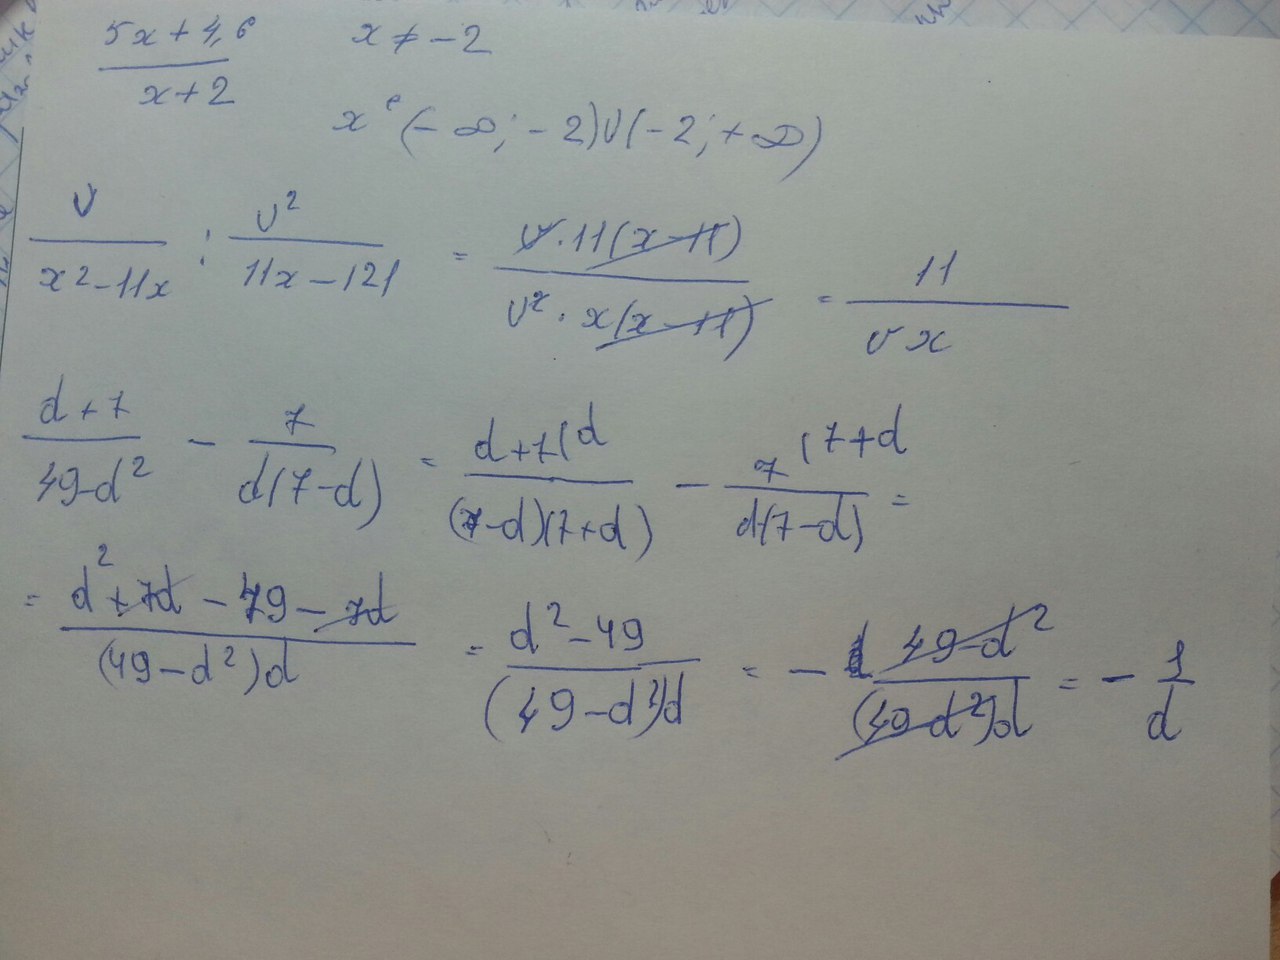 5x+4,6 / x+2   x ≠ -2
x ∈ (-∞; -2)∪(-2; +∞)
v / x²-11x : v² / 11x-121 = v·11(x-11) / v²·x(x-11) = 11 / vx
d+7 / 49-d² - 7 / d(7-d) = d+7(d / (7-d)(7+d) - 7(7+d / d(7-d) =
= d²+7d-49-7d / (49-d²)d = d²-49 / (49-d²)d = - 49-d² / (49-d²)d = - 1 / d